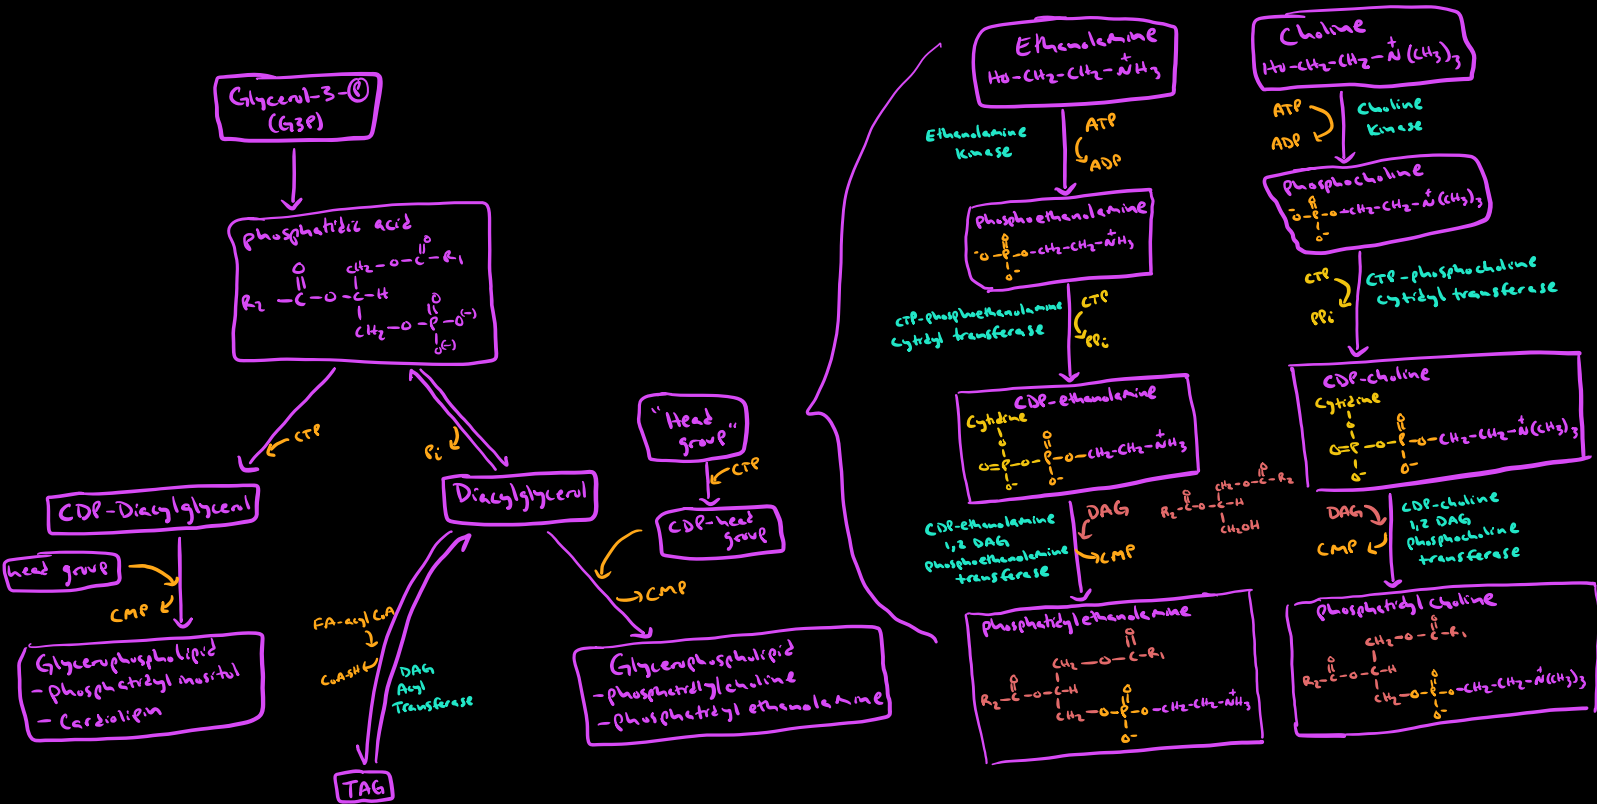 Glycerol-3-Ⓟ
(G3P)
phosphatidic acid
O
CH₂-O-C-R₁
O
R₂-C-O-C-H
O
CH₂-O-P-O(-)
O(-)
CTP
Pi
CDP-Diacylglycerol
Diacylglycerol
"Head
group"
CTP
CDP-head
group
head group
CMP
CMP
Glycerophospholipid
-phosphatidyl inositol
-Cardiolipin
FA-acyl CoA
CoA-SH
DAG
Acyl
Transferase
TAG
Glycerophospholipid
-phosphatidylcholine
-phosphatidyl ethanolamine
Ethanolamine
HO-CH₂-CH₂-N⁺H₃
Ethanolamine
Kinase
ATP
ADP
phosphoethanolamine
O
⁻O-P-O-CH₂-CH₂-N⁺H₃
O⁻
CTP-phosphoethanolamine
cytidyl transferase
CTP
PPi
CDP-ethanolamine
Cytidine
O
O
O=P-O-P-O-CH₂-CH₂-N⁺H₃
O⁻
O⁻
CDP-ethanolamine
1,2 DAG
phosphoethanolamine
transferase
DAG
CMP
O
CH₂-O-C-R₂
O
R₂-C-O-C-H
CH₂OH
phosphatidylethanolamine
O
CH₂-O-C-R₁
O
R₂-C-O-C-H
O
CH₂-O-P-O-CH₂-CH₂-N⁺H₃
O⁻
Choline
HO-CH₂-CH₂-N⁺(CH₃)₃
ATP
ADP
Choline
Kinase
phosphocholine
O
⁻O-P-O-CH₂-CH₂-N⁺(CH₃)₃
O⁻
CTP
PPi
CTP-phosphocholine
cytidyl transferase
CDP-choline
Cytidine
O
O
O=P-O-P-O-CH₂-CH₂-N⁺(CH₃)₃
O⁻
O⁻
DAG
CMP
CDP-choline
1,2 DAG
phosphocholine
transferase
phosphatidyl choline
O
CH₂-O-C-R₁
O
R₂-C-O-C-H
O
CH₂-O-P-O-CH₂-CH₂-N⁺(CH₃)₃
O⁻